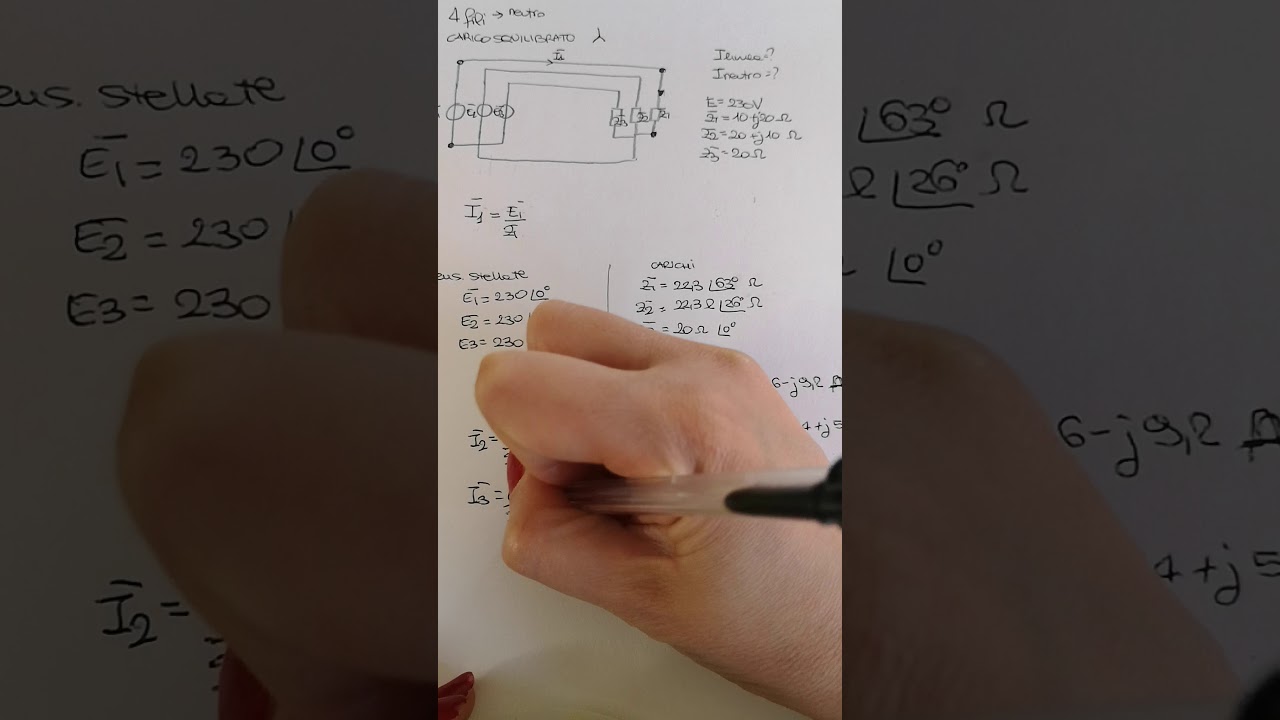 4 fili → neutro
CARICO SQUILIBRATO
I1
I linea=?
I neutro=?
E = 230V
Z1 = 10+j20 Ω
Z2 = 20+j10 Ω
Z3 = 20Ω
Z3 Z2 Z1
I1 = E1
Z1
stellate
E1 = 230 ∠0°
E2 = 230
E3 = 230
CARICHI
Z1 = 22,3 ∠63° Ω
Z2 = 22,3 Ω ∠26° Ω
= 20 Ω ∠0°
6-j9,2 A
4+j5
I2 =
I3 =